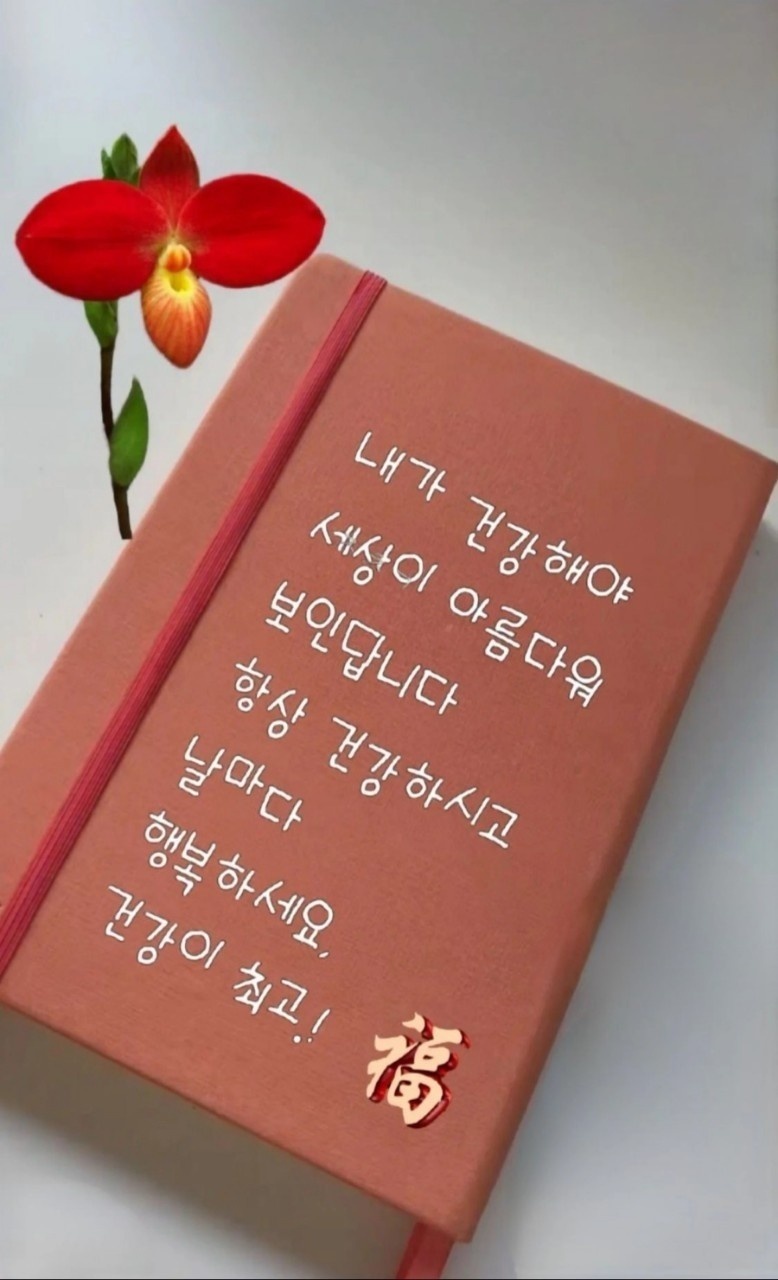 내가 건강해야
세상이 아름다워
보인답니다
항상 건강하시고
날마다
행복하세요,
건강이 최고!
福